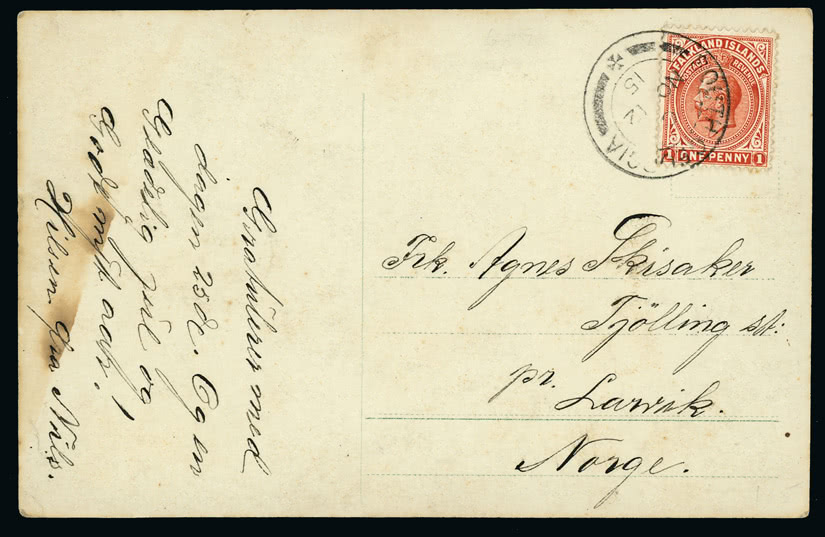 Gratulerer med
dagen 25de. Og en
Glædelig jul og
Godt nytt aar!
Hilsen fra Nils.
FALKLAND ISLANDS
POSTAGE REVENUE
1 ONE PENNY 1
SOUTH GEORGIA
NO
15
Frk. Agnes Skisaker
Tjölling st:
pr. Larvik.
Norge.